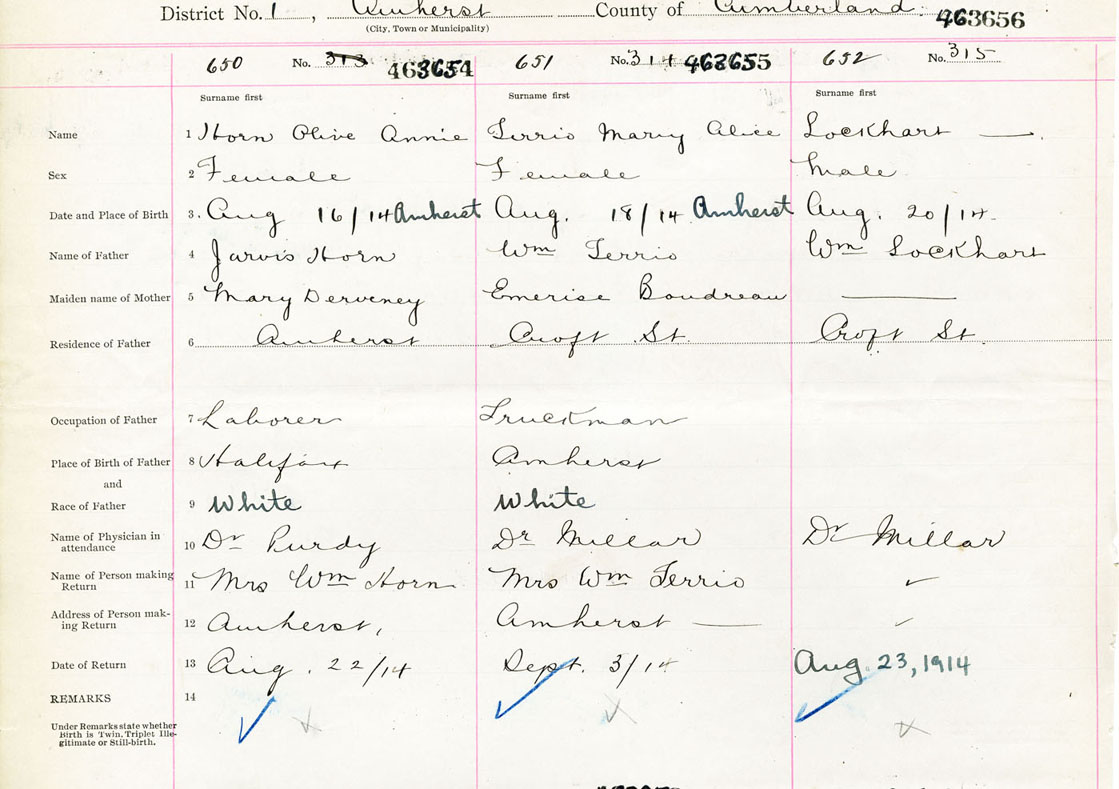 District No. 1, Amherst County of Cumberland. 463656
(City, Town or Municipality)
650 No. 313 463654 651 No. 314 463655 652 No. 315
Surname first Surname first Surname first
Name 1 Horn Olive Annie Terrio Mary Alice Lockhart —.
Sex 2 Female Female Male
Date and Place of Birth 3. Aug 16/14 Amherst Aug. 18/14 Amherst Aug. 20/14.
Name of Father 4 Jarvis Horn Wm Terrio Wm Lockhart
Maiden name of Mother 5 Mary Derveney Emerise Boudreau —
Residence of Father 6 Amherst Croft St. Croft St.
Occupation of Father 7 Laborer Truckman
Place of Birth of Father 8 Halifax Amherst
and
Race of Father 9 White White
Name of Physician in
attendance 10 Dr Purdy Dr Millar Dr Millar
Name of Person making
Return 11 Mrs Wm Horn Mrs Wm Terrio
Address of Person mak-
ing Return 12 Amherst, Amherst —
Date of Return 13 Aug. 22/14 Sept. 3/14 Aug. 23, 1914
REMARKS 14
Under Remarks state whether
Birth is Twin, Triplet Ille-
gitimate or Still-birth.